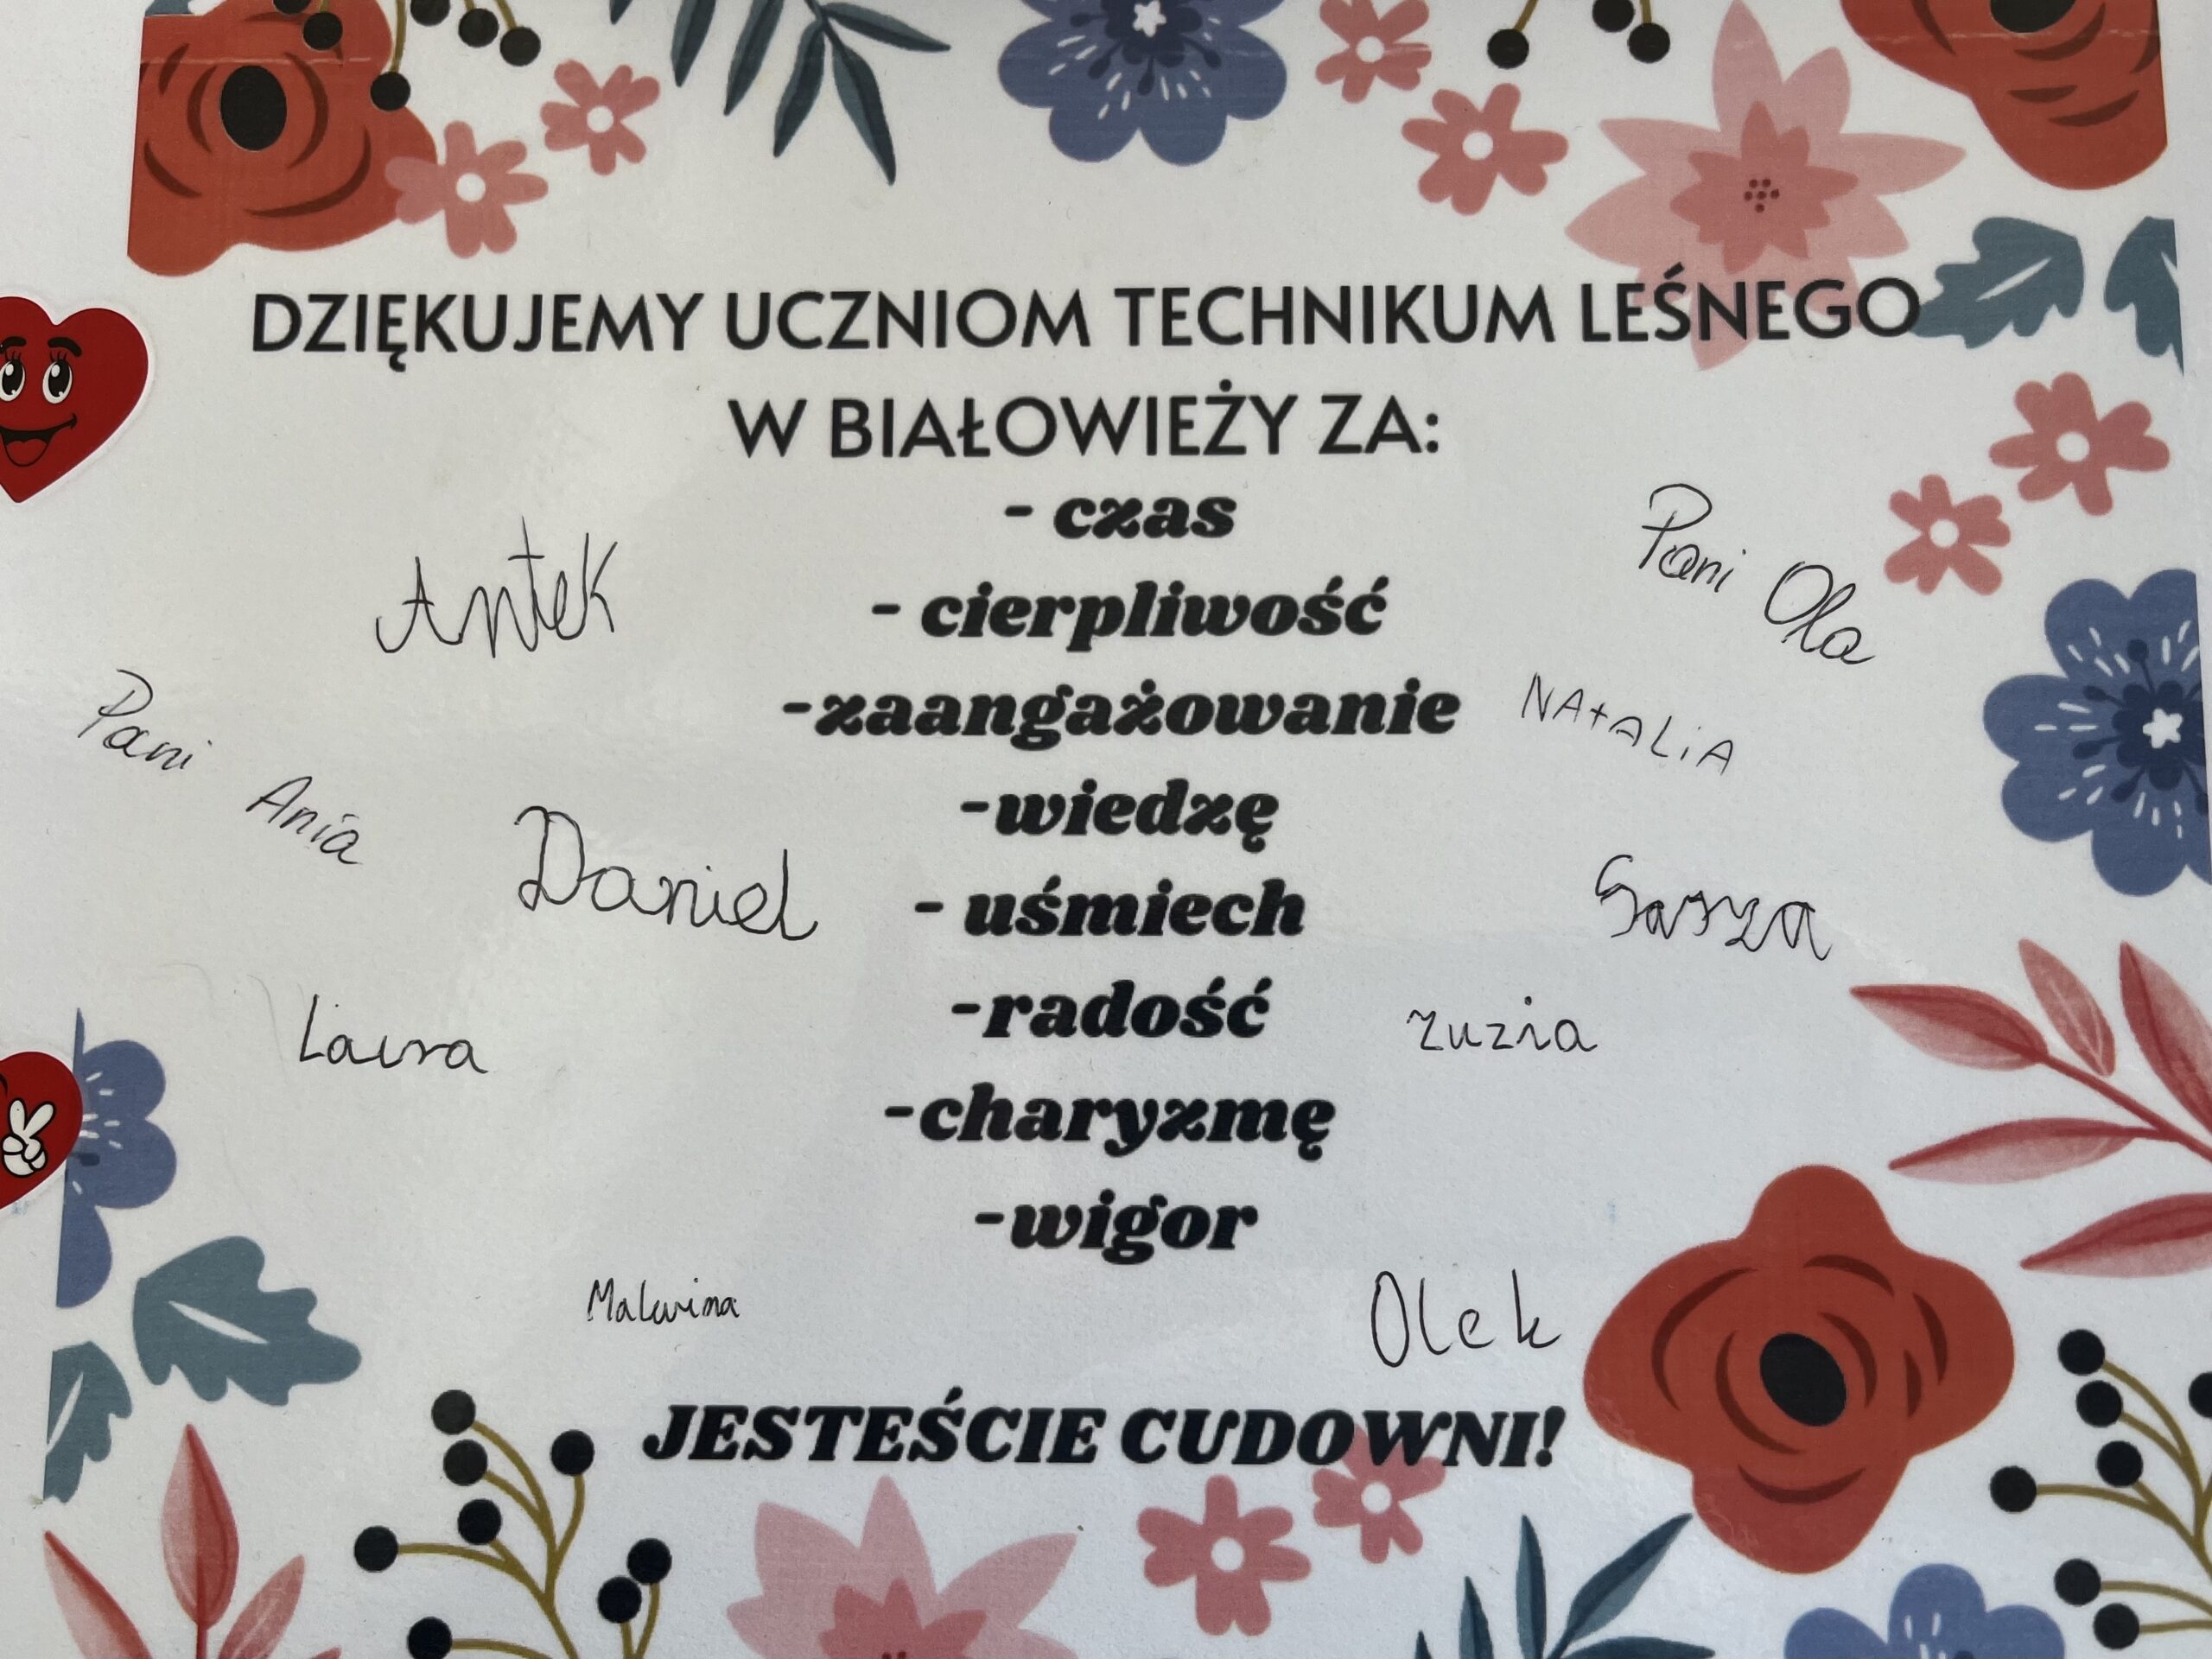 DZIĘKUJEMY UCZNIOM TECHNIKUM LEŚNEGO
W BIAŁOWIEŻY ZA:
- czas
- cierpliwość
-zaangażowanie
-wiedzę
- uśmiech
-radość
-charyzmę
-wigor
Antek
Pani Ola
Pani Ania
NAtALiA
Daniel
Sasza
Laura
zuzia
Malwina
Olek
JESTEŚCIE CUDOWNI!